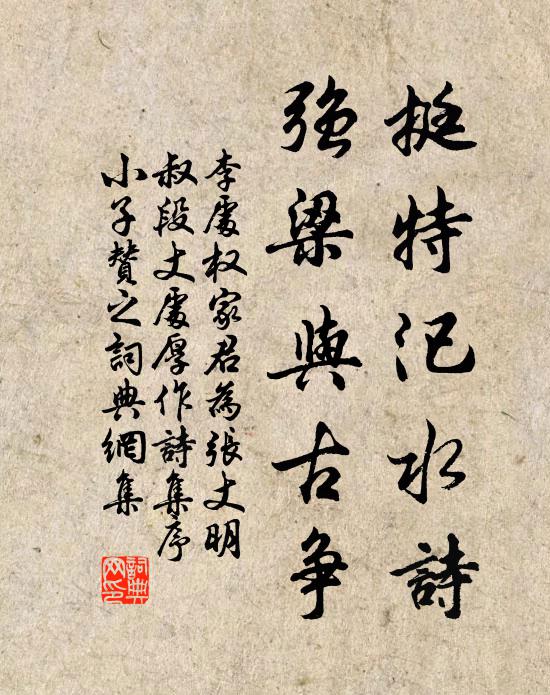 挺特汜水詩
強梁與古争
李處权家君為張丈明
叔段丈處厚作詩集序
小子賛之詞典網集
詞典网印